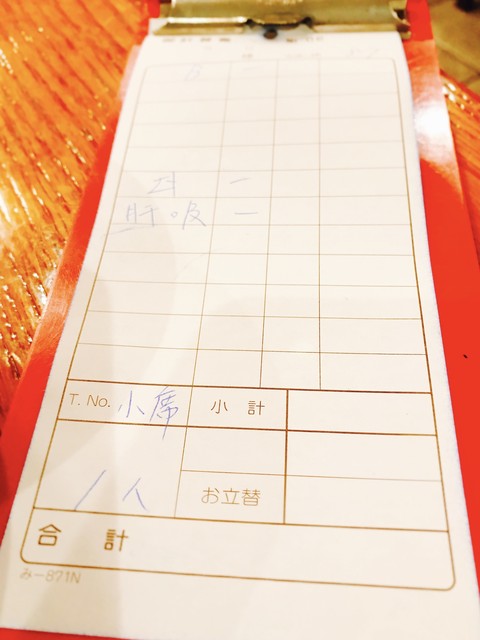 肝吸 一
T. No. 小席 小計
1人
お立替
合計
み-871N